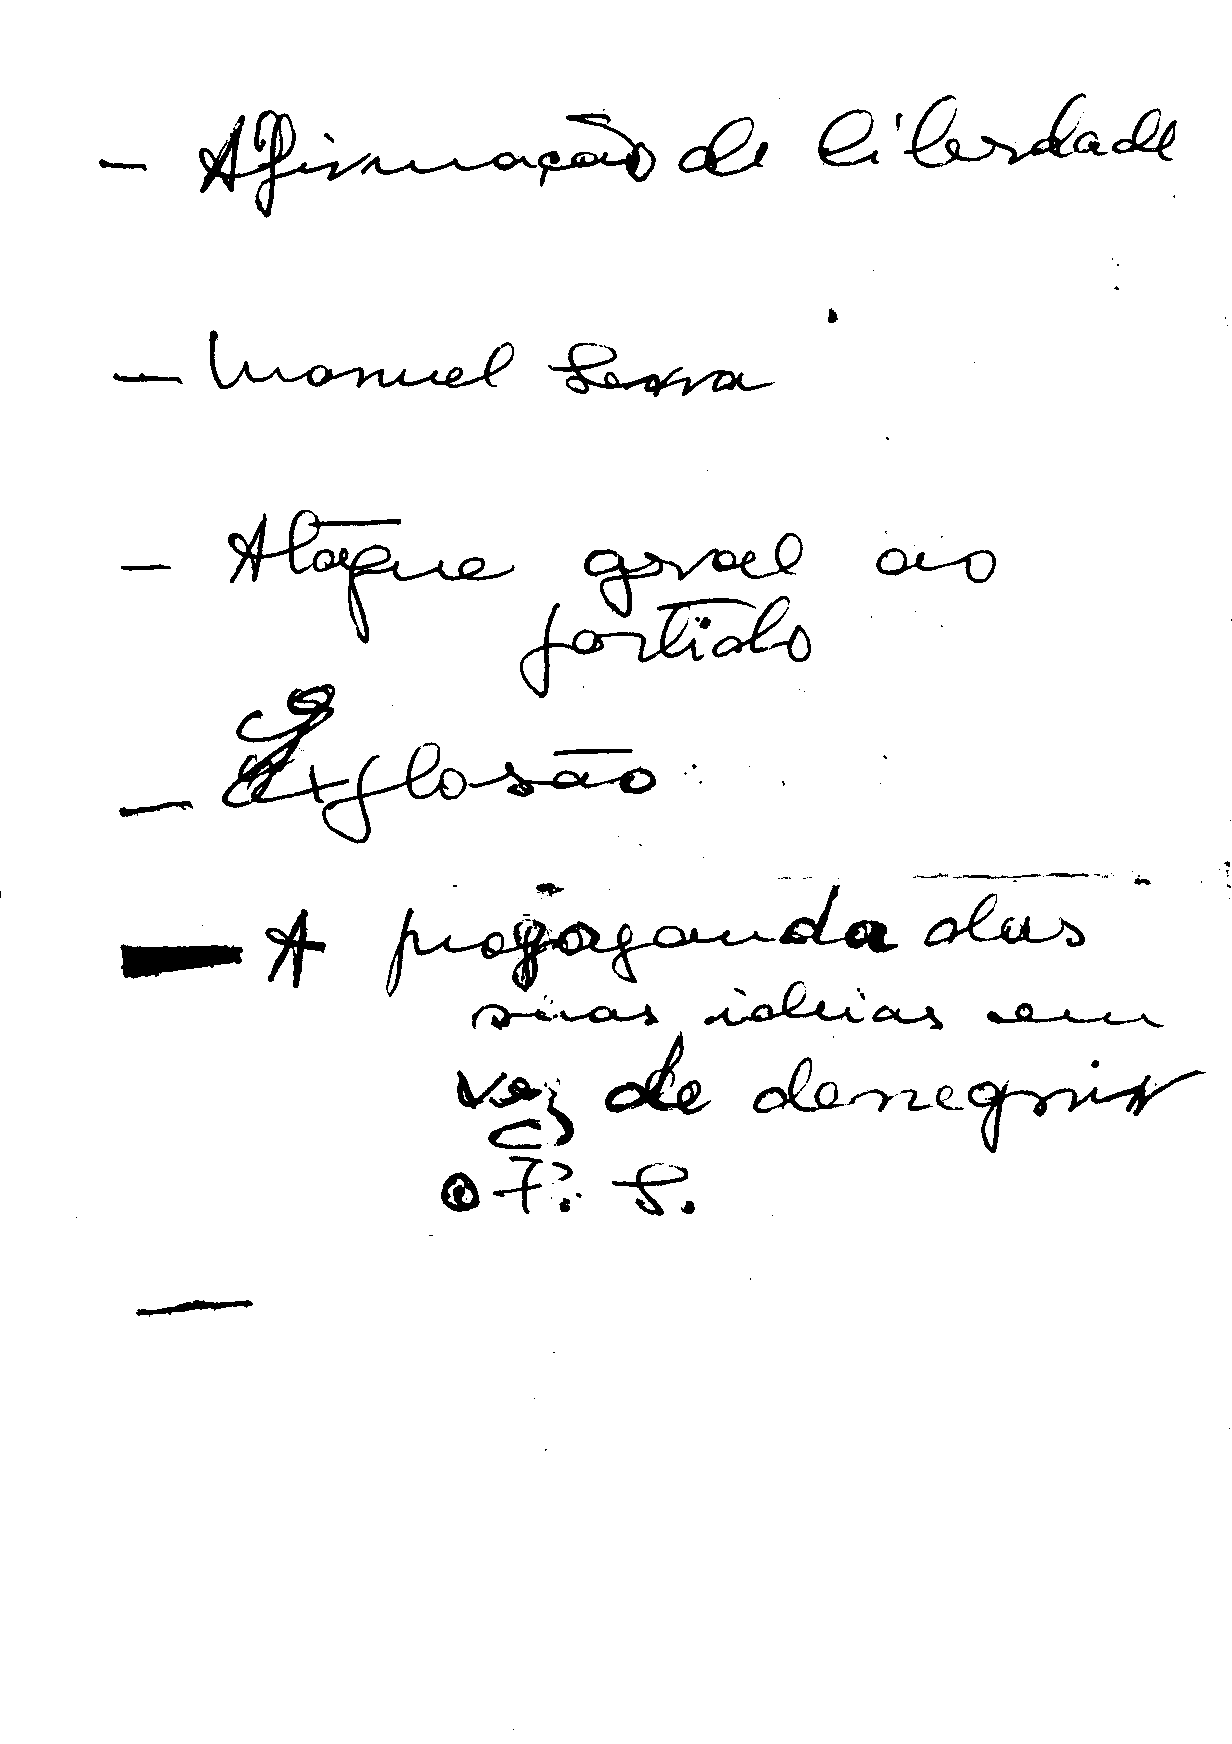 - Afirmação de liberdade
- Manuel Serra
- Ataque geral ao
partido
- Explosão
- A propaganda das
suas ideias em
vez de denegrir
o P. S.
-